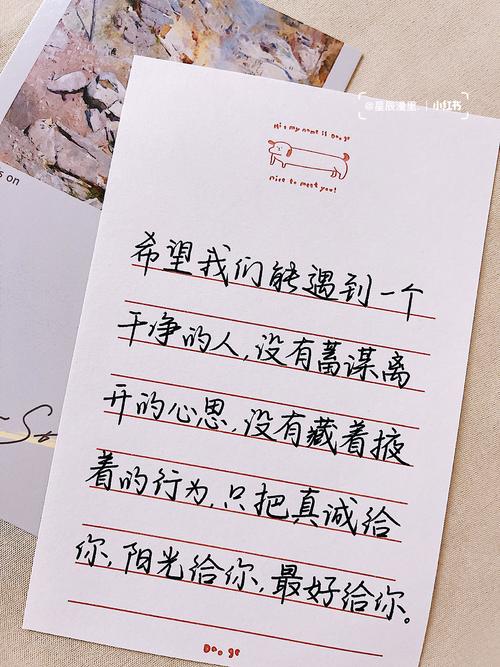 @星辰漫里. | 小红书
Hi~ my name is Dao ge
nice to meet you!
s on
希望我们能遇到一个
干净的人,没有蓄谋离
开的心思,没有藏着掖
着的行为,只把真诚给
你,阳光给你,最好给你。
Dao ge